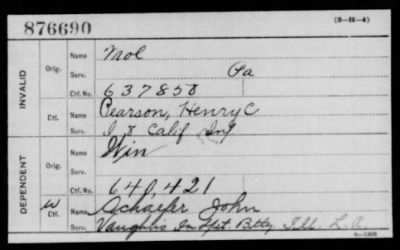 876690
(3-H-4)
INVALID
Orig.
Name Mol
Serv. Pa
Ctf. No. 637858
Ctf.
Name Pearson, Henry C
Serv. I 8 Calif Inf
DEPENDENT
Orig.
Name Win
Serv.
Ctf. No. 640,421
W
Ctf.
Name Schaefer John
Serv. Vaughn's In Lgt. Batty Ill L. A.